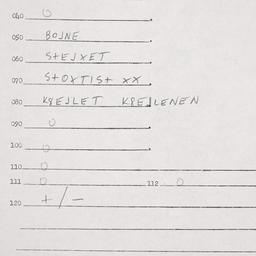 040 O
050 BOJNE
060 StEJXET
070 StOXTISt XX
080 KREJLET KREJLENEN
090 O
100 O
110 O
111 O 112 O
120 + / -